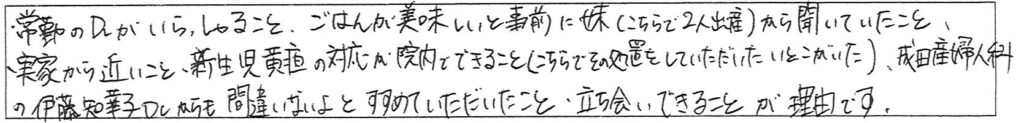 ・常勤のDr.がいらっしゃること、ごはんが美味しいと事前に妹(こちらで2人出産)から聞いていたこと、
・実家から近いこと、新生児黄疸の対応が院内でできること(こちらでその処置をしていただいたいとこがいた)、成田産婦人科
の伊藤知華子Dr.からも間違いないよとすすめていただいたこと・立ち会いできることが理由です。